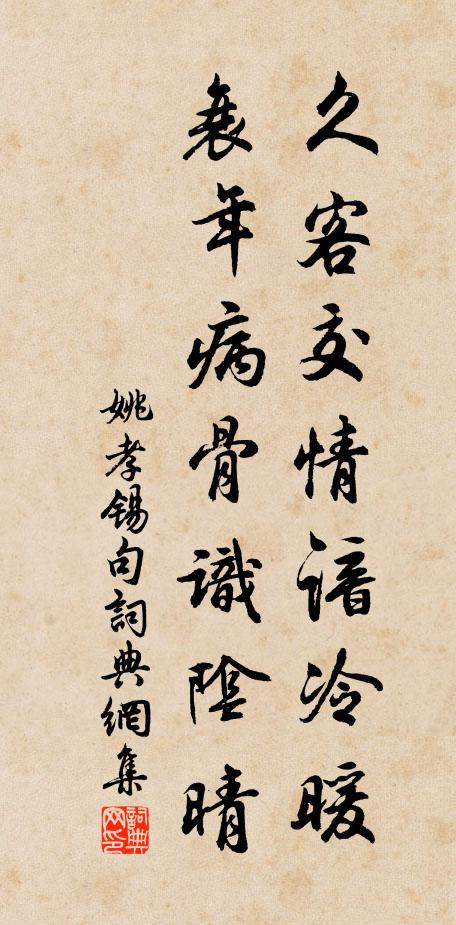 久客交情諳冷暖
衰年病骨識陰晴
姚孝锡句詞典網集
詞典网印